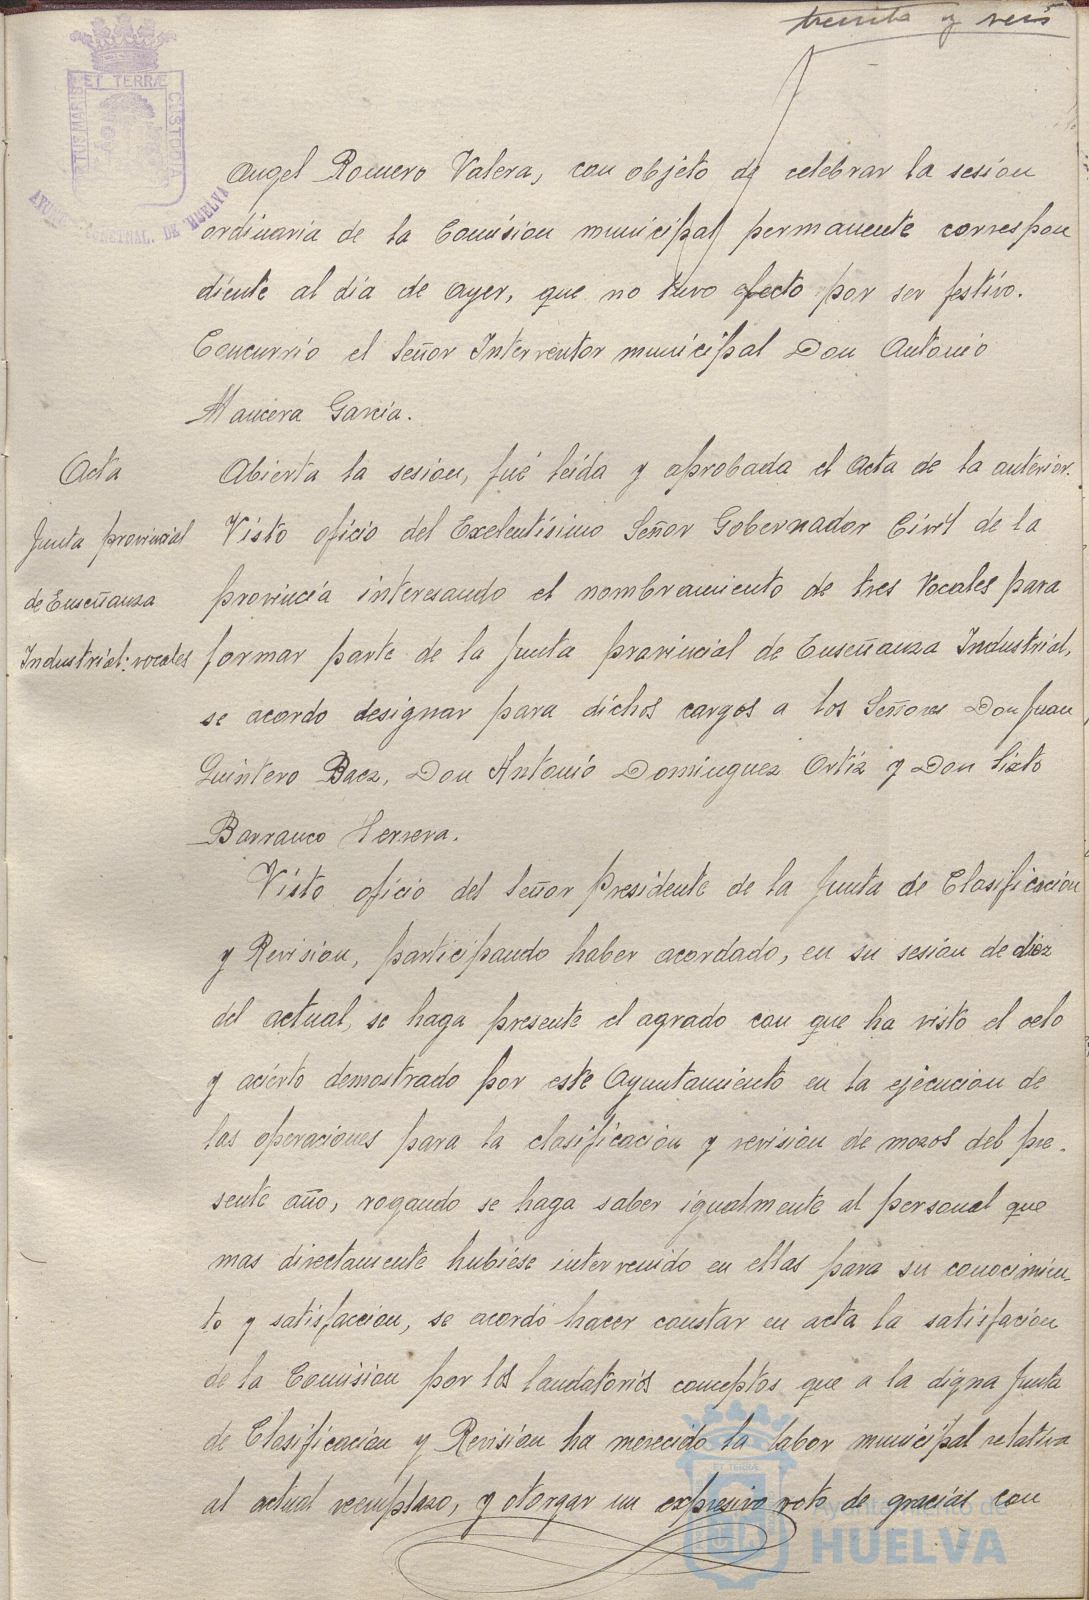 treinta y seis
ET TERRÆ
CUSTODIA
DE HUELVA
Angel Romero Valera, con objeto de celebrar la sesion
ordinaria de la Comision municipal permanente correspon
diente al dia de ayer, que no tuvo efecto por ser festivo.
Concurrio el Señor Interventor municipal Don Antonio
Mancera Garcia.
Acta
Abierta la sesion, fué leida y aprobada el acta de la anterior.
Junta provincial
de Enseñanza
Industrial: vocales
Visto oficio del Exelentisimo Señor Gobernador Civil de la
provincia interesando el nombramiento de tres Vocales para
formar parte de la Junta provincial de Enseñanza Industrial,
se acordo designar para dichos cargos a los Señores Don Juan
Quintero Baez, Don Antonio Dominguez Ortiz y Don Sixto
Barranco Herrera.
Visto oficio del Señor Presidente de la Junta de Clasificacion
y Revision, participando haber acordado, en su sesion de diez
del actual, se haga presente el agrado con que ha visto el celo
y acierto demostrado por este Ayuntamiento en la ejecucion de
las operaciones para la clasificacion y revision de mozos del pre-
sente año, rogando se haga saber igualmente al personal que
mas directamente hubiese intervenido en ellas para su conocimien-
to y satisfaccion, se acordó hacer constar en acta la satisfacion
de la Comision por los laudatorios conceptos que a la digna Junta
de Clasificacion y Revision ha merecido la labor municipal relativa
al actual reemplazo, y otorgar un expresivo voto de gracias con
Ayuntamiento de
HUELVA